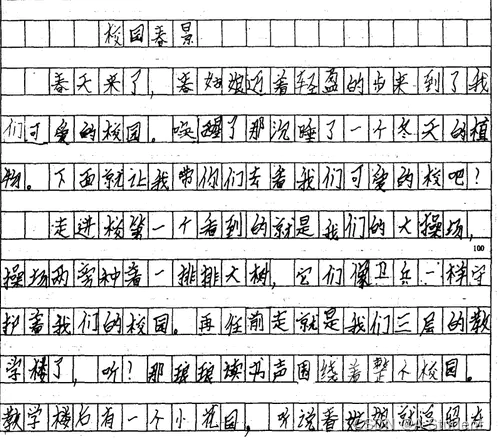 校园春景
春天来了，春姑娘迈着轻盈的步来到了我
们可爱的校园。唤醒了那沉睡了一个冬天的植
物。下面就让我带你们去看我们可爱的校吧？
走进校第一个看到的就是我们的大操场，
100
操场两旁种着一排排大树，它们像卫兵一样守
护着我们的校园。再往前走就是我们三层的教
学楼了，听？那琅琅读书声围绕着整个校园。
教学楼后有一个小花园，听说春姑娘就逗留在